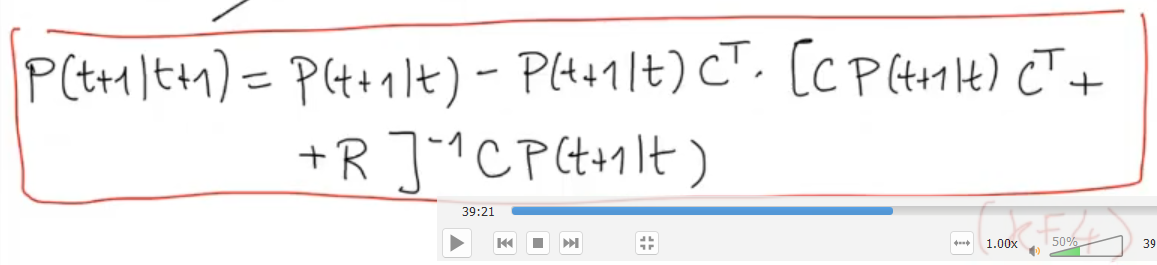 P(t+1|t+1) = P(t+1|t) - P(t+1|t) Cᵀ. [C P(t+1|t) Cᵀ +
+ R ]⁻¹ C P(t+1|t)
39:21
(KF4)
1.00x
50%
39